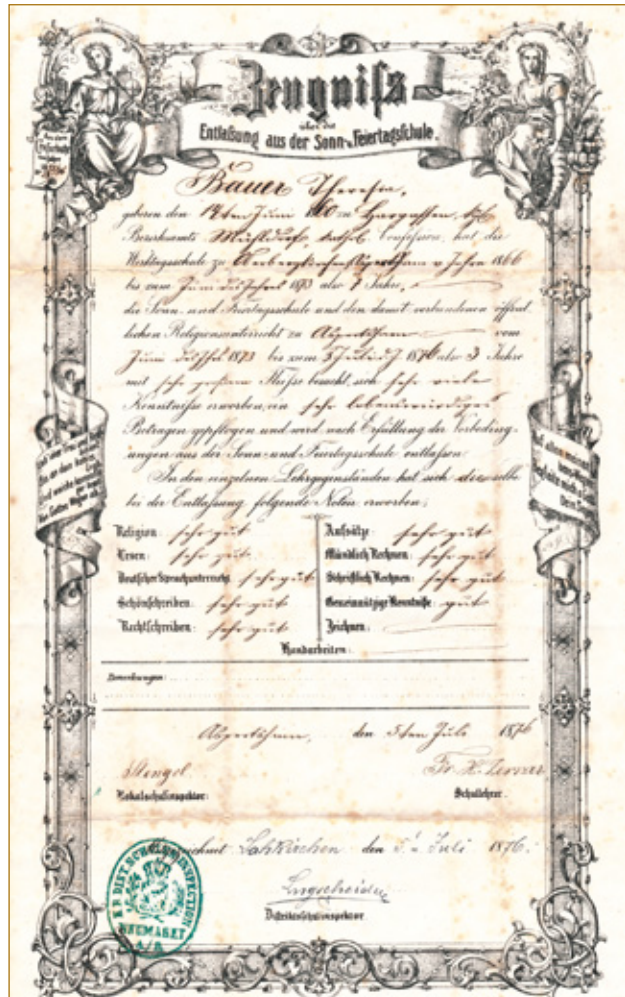 Zeugniß
über die
Entlassung aus der Sonn- u. Feiertagsschule.
Bauer Theresia,
geboren den 14ten Juni 1860 zu
Bezirksamts Mühldorf, kathol. Confession, hat die
Werktagsschule zu v. Jahre 1866
bis zum Juni des Jahres 1873 also 7 Jahre,
die Sonn- und Feiertagsschule und den damit verbundenen öffent
lichen Religionsunterricht zu Aspertsham vom
Juni 1873 bis zum 5 Juli 1876 also 3 Jahre
mit sehr großem Fleiße besucht, sich sehr viele
Kenntnisse erworben, ein sehr lobenswürdiges
Betragen gepflogen und wird nach Erfüllung der Vorbeding-
ungen aus der Sonn- und Feiertagsschule entlassen.
In den einzelnen Lehrgegenständen hat sich dieselbe
bei der Entlassung folgende Noten erworben;
Religion: sehr gut
Lesen: sehr gut
Deutscher Sprachunterricht sehr gut
Schönschreiben: sehr gut
Rechtschreiben: sehr gut
Aufsätze: sehr gut
Mündlich Rechnen: sehr gut
Schriftlich Rechnen: sehr gut
Gemeinnützige Kenntniße: gut
Zeichnen:
Handarbeiten:
Bemerkungen:
Aspertsham, den 5ten Juli 1876
Stengel
Lokalschulinspektor:
Schullehrer.
den 5. Juli 1876.
Distriktsschulinspektor
K. B. DISTR. SCHULINSPECTION
NEUMARKT
A/R.